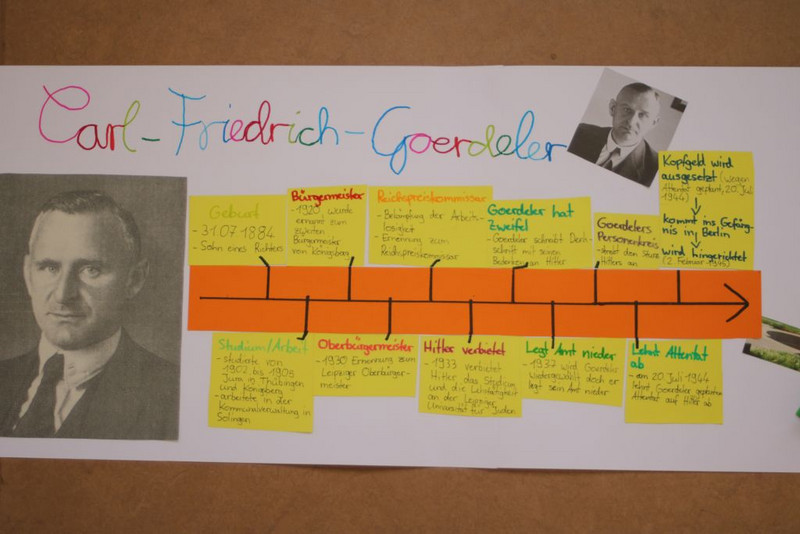 Carl-Friedrich-Goerdeler
Geburt
- 31.07.1884
- Sohn eines Richters
Bürgermeister
- 1920 wurde
ernannt zum
zweiten
Bürgermeister
von Königsberg
Reichspreiskommissar
- Bekämpfung der Arbeits-
losigkeit
- Ernennung zum
Reichspreiskommissar
Goerdeler hat
Zweifel
- Goerdeler schreibt Denk-
schrift mit seinen
Bedenken an Hitler
Goerdelers
Personenkreis
- strebt den Sturz
Hitlers an
Kopfgeld wird
ausgesetzt (wegen
Attentat geplant, 20. Juli
1944)
kommt ins Gefäng-
nis in Berlin
wird hingerichtet
(2. Februar 1945)
Studium/Arbeit
- studierte von
1902 bis 1905
Jura in Thübingen
und Königsberg
- arbeitete in der
Kommunalverwaltung in
Solingen
Oberbürgermeister
- 1930 Ernennung zum
Leipziger Oberbürger-
meister
Hitler verbietet
- 1933 verbietet
Hitler das Studium
und die Lehrtätigkeit
an der Leipziger
Universität für Juden
Legt Amt nieder
- 1937 wird Goerdeler
wiedergewählt doch er
legt sein Amt nieder
Lehnt Attentat
ab
- am 20. Juli 1944
lehnt Goerdeler geplantes
Attentat auf Hitler ab